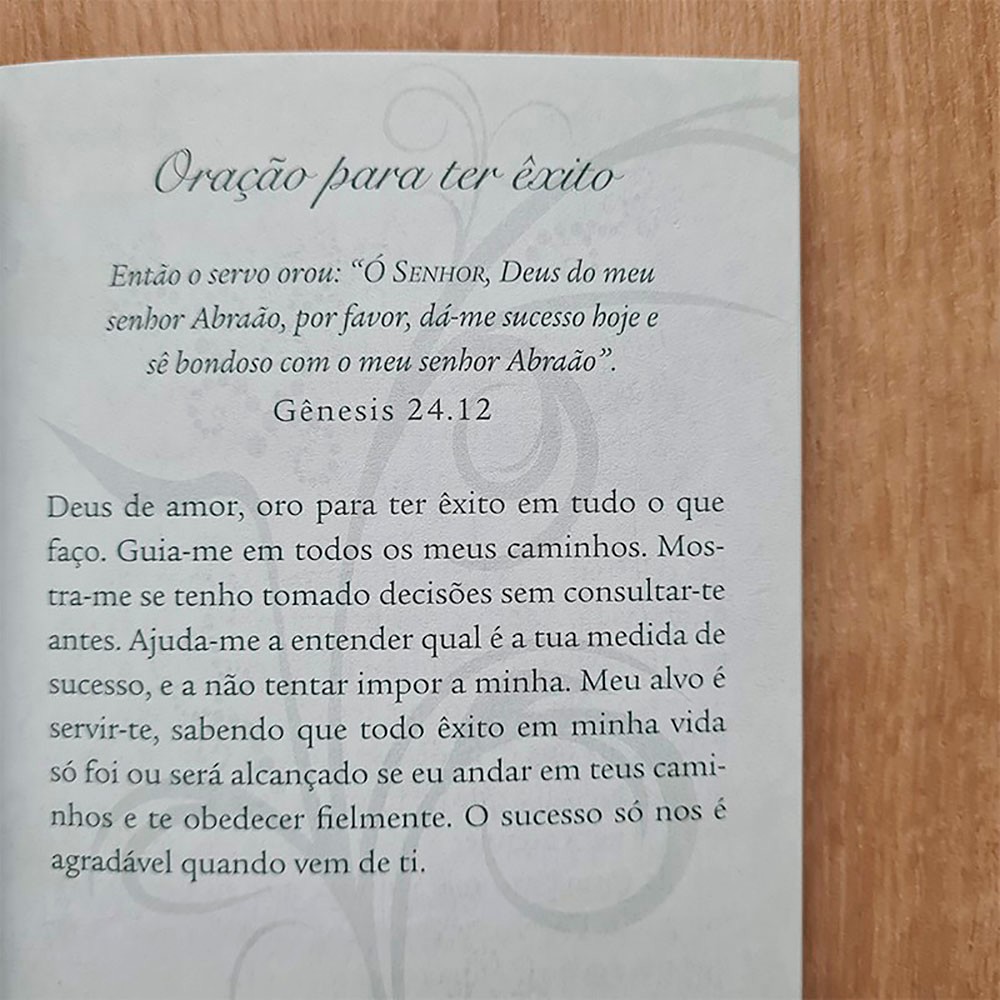 Oração para ter êxito
Então o servo orou: “Ó SENHOR, Deus do meu
senhor Abraão, por favor, dá-me sucesso hoje e
sê bondoso com o meu senhor Abraão”.
Gênesis 24.12
Deus de amor, oro para ter êxito em tudo o que
faço. Guia-me em todos os meus caminhos. Mos-
tra-me se tenho tomado decisões sem consultar-te
antes. Ajuda-me a entender qual é a tua medida de
sucesso, e a não tentar impor a minha. Meu alvo é
servir-te, sabendo que todo êxito em minha vida
só foi ou será alcançado se eu andar em teus cami-
nhos e te obedecer fielmente. O sucesso só nos é
agradável quando vem de ti.